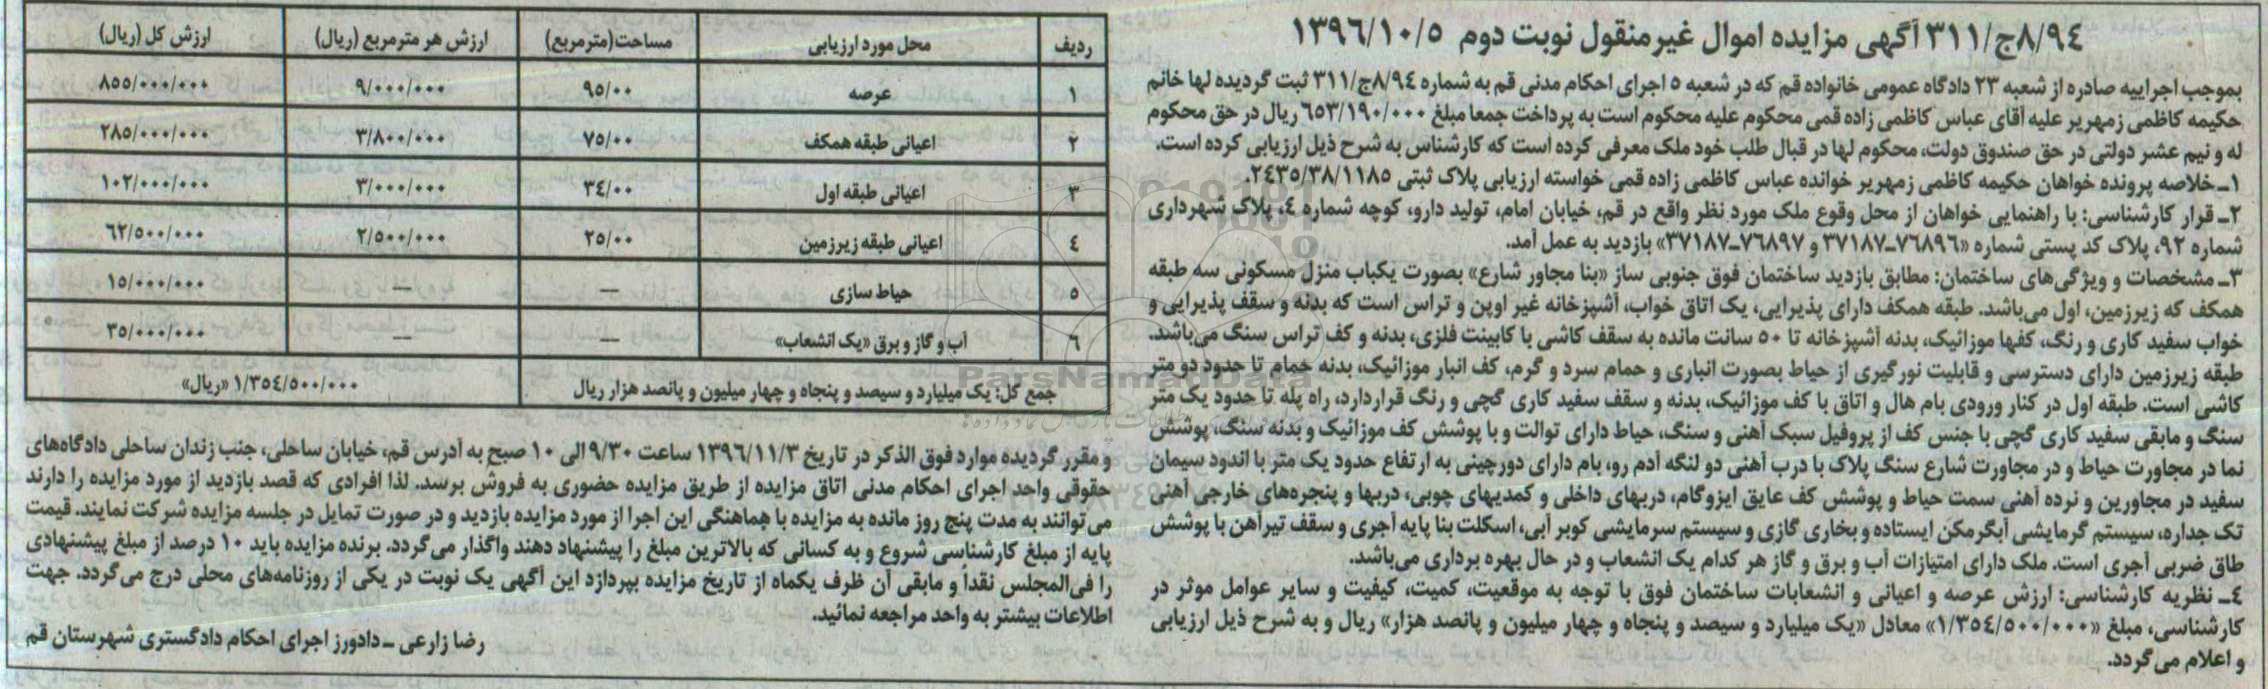 ۸/۹۴ج/۳۱۱ آگهی مزایده اموال غیرمنقول نوبت دوم ۱۳۹۶/۱۰/۵
بموجب اجراییه صادره از شعبه ۲۳ دادگاه عمومی خانواده قم که در شعبه ۵ اجرای احکام مدنی قم به شماره ۸/۹۴ج/۳۱۱ ثبت گردیده لها خانم
حکیمه کاظمی زمهریر علیه آقای عباس کاظمی زاده قمی محکوم علیه محکوم است به پرداخت جمعا مبلغ ۶۵۳/۱۹۰/۰۰۰ ریال در حق محکوم
له و نیم عشر دولتی در حق صندوق دولت، محکوم لها در قبال طلب خود ملک معرفی کرده است که کارشناس به شرح ذیل ارزیابی کرده است.
۱ـ خلاصه پرونده خواهان حکیمه کاظمی زمهریر خوانده عباس کاظمی زاده قمی خواسته ارزیابی پلاک ثبتی ۲۴۳۵/۳۸/۱۱۸۵.
۲ـ قرار کارشناسی: با راهنمایی خواهان از محل وقوع ملک مورد نظر واقع در قم، خیابان امام، تولید دارو، کوچه شماره ۴، پلاک شهرداری
شماره ۹۲، پلاک کد پستی شماره «۷۶۸۹۶-۳۷۱۸۷ و ۷۶۸۹۷-۳۷۱۸۷» بازدید به عمل آمد.
۳ـ مشخصات و ویژگی های ساختمان: مطابق بازدید ساختمان فوق جنوبی ساز «بنا مجاور شارع» بصورت یکباب منزل مسکونی سه طبقه
همکف که زیرزمین، اول می‌باشد. طبقه همکف دارای پذیرایی، یک اتاق خواب، آشپزخانه غیر اوپن و تراس است که بدنه و سقف پذیرایی و
خواب سفید کاری و رنگ، کفها موزائیک، بدنه آشپزخانه تا ۵۰ سانت مانده به سقف کاشی با کابینت فلزی، بدنه و کف تراس سنگ می‌باشد.
طبقه زیرزمین دارای دسترسی و قابلیت نورگیری از حیاط بصورت انباری و حمام سرد و گرم، کف انبار موزائیک، بدنه حمام تا حدود دو متر
کاشی است. طبقه اول در کنار ورودی بام هال و اتاق با کف موزائیک، بدنه و سقف سفید کاری گچی و رنگ قراردارد، راه پله تا حدود یک متر
سنگ و مابقی سفید کاری گچی با جنس کف از پروفیل سبک آهنی و سنگ، حیاط دارای توالت و با پوشش کف موزائیک و بدنه سنگ، پوشش
نما در مجاورت حیاط و در مجاورت شارع سنگ پلاک با درب آهنی دو لنگه آدم رو، بام دارای دورچینی به ارتفاع حدود یک متر با اندود سیمان
سفید در مجاورین و نرده آهنی سمت حیاط و پوشش کف عایق ایزوگام، دربهای داخلی و کمدیهای چوبی، دربها و پنجره‌های خارجی آهنی
تک جداره، سیستم گرمایشی آبگرمکن ایستاده و بخاری گازی و سیستم سرمایشی کولر آبی، اسکلت بنا پایه آجری و سقف تیرآهن با پوشش
طاق ضربی آجری است. ملک دارای امتیازات آب و برق و گاز هر کدام یک انشعاب و در حال بهره برداری می‌باشد.
۴ـ نظریه کارشناسی: ارزش عرصه و اعیانی و انشعابات ساختمان فوق با توجه به موقعیت، کمیت، کیفیت و سایر عوامل موثر در
کارشناسی، مبلغ «۱/۳۵۴/۵۰۰/۰۰۰» معادل «یک میلیارد و سیصد و پنجاه و چهار میلیون و پانصد هزار» ریال و به شرح ذیل ارزیابی
و اعلام می‌گردد.
ردیف محل مورد ارزیابی مساحت(مترمربع) ارزش هر مترمربع (ریال) ارزش کل (ریال)
۱ عرصه ۹۵/۰۰ ۹/۰۰۰/۰۰۰ ۸۵۵/۰۰۰/۰۰۰
۲ اعیانی طبقه همکف ۷۵/۰۰ ۳/۸۰۰/۰۰۰ ۲۸۵/۰۰۰/۰۰۰
۳ اعیانی طبقه اول ۳۴/۰۰ ۳/۰۰۰/۰۰۰ ۱۰۲/۰۰۰/۰۰۰
۴ اعیانی طبقه زیرزمین ۲۵/۰۰ ۲/۵۰۰/۰۰۰ ۶۲/۵۰۰/۰۰۰
۵ حیاط سازی — — ۱۵/۰۰۰/۰۰۰
۶ آب و گاز و برق «یک انشعاب» — — ۳۵/۰۰۰/۰۰۰
جمع کل: یک میلیارد و سیصد و پنجاه و چهار میلیون و پانصد هزار ریال ۱/۳۵۴/۵۰۰/۰۰۰ «ریال»
و مقرر گردیده موارد فوق الذکر در تاریخ ۱۳۹۶/۱۱/۳ ساعت ۹/۳۰ الی ۱۰ صبح به آدرس قم، خیابان ساحلی، جنب زندان ساحلی دادگاه‌های
حقوقی واحد اجرای احکام مدنی اتاق مزایده از طریق مزایده حضوری به فروش برسد. لذا افرادی که قصد بازدید از مورد مزایده را دارند
می‌توانند به مدت پنج روز مانده به مزایده با هماهنگی این اجرا از مورد مزایده بازدید و در صورت تمایل در جلسه مزایده شرکت نمایند. قیمت
پایه از مبلغ کارشناسی شروع و به کسانی که بالاترین مبلغ را پیشنهاد دهند واگذار می‌گردد. برنده مزایده باید ۱۰ درصد از مبلغ پیشنهادی
را فی‌المجلس نقداً و مابقی آن ظرف یکماه از تاریخ مزایده بپردازد این آگهی یک نوبت در یکی از روزنامه‌های محلی درج می‌گردد. جهت
اطلاعات بیشتر به واحد مراجعه نمائید.
رضا زارعی ـ دادورز اجرای احکام دادگستری شهرستان قم
ParsNamadData